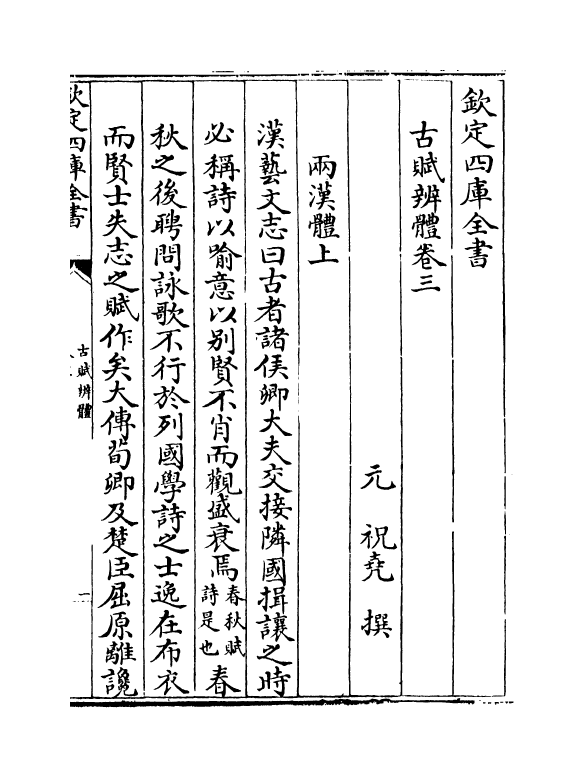 欽定四庫全書
古賦辨體卷三
元 祝堯 撰
兩漢體上
漢藝文志曰古者諸侯卿大夫交接隣國揖讓之時
必稱詩以喻意以别賢不肖而觀盛衰焉春秋賦詩是也春
秋之後聘問詠歌不行於列國學詩之士逸在布衣
而賢士失志之賦作矣大傳荀卿及楚臣屈原離讒
欽定四庫全書
古賦辨體
一